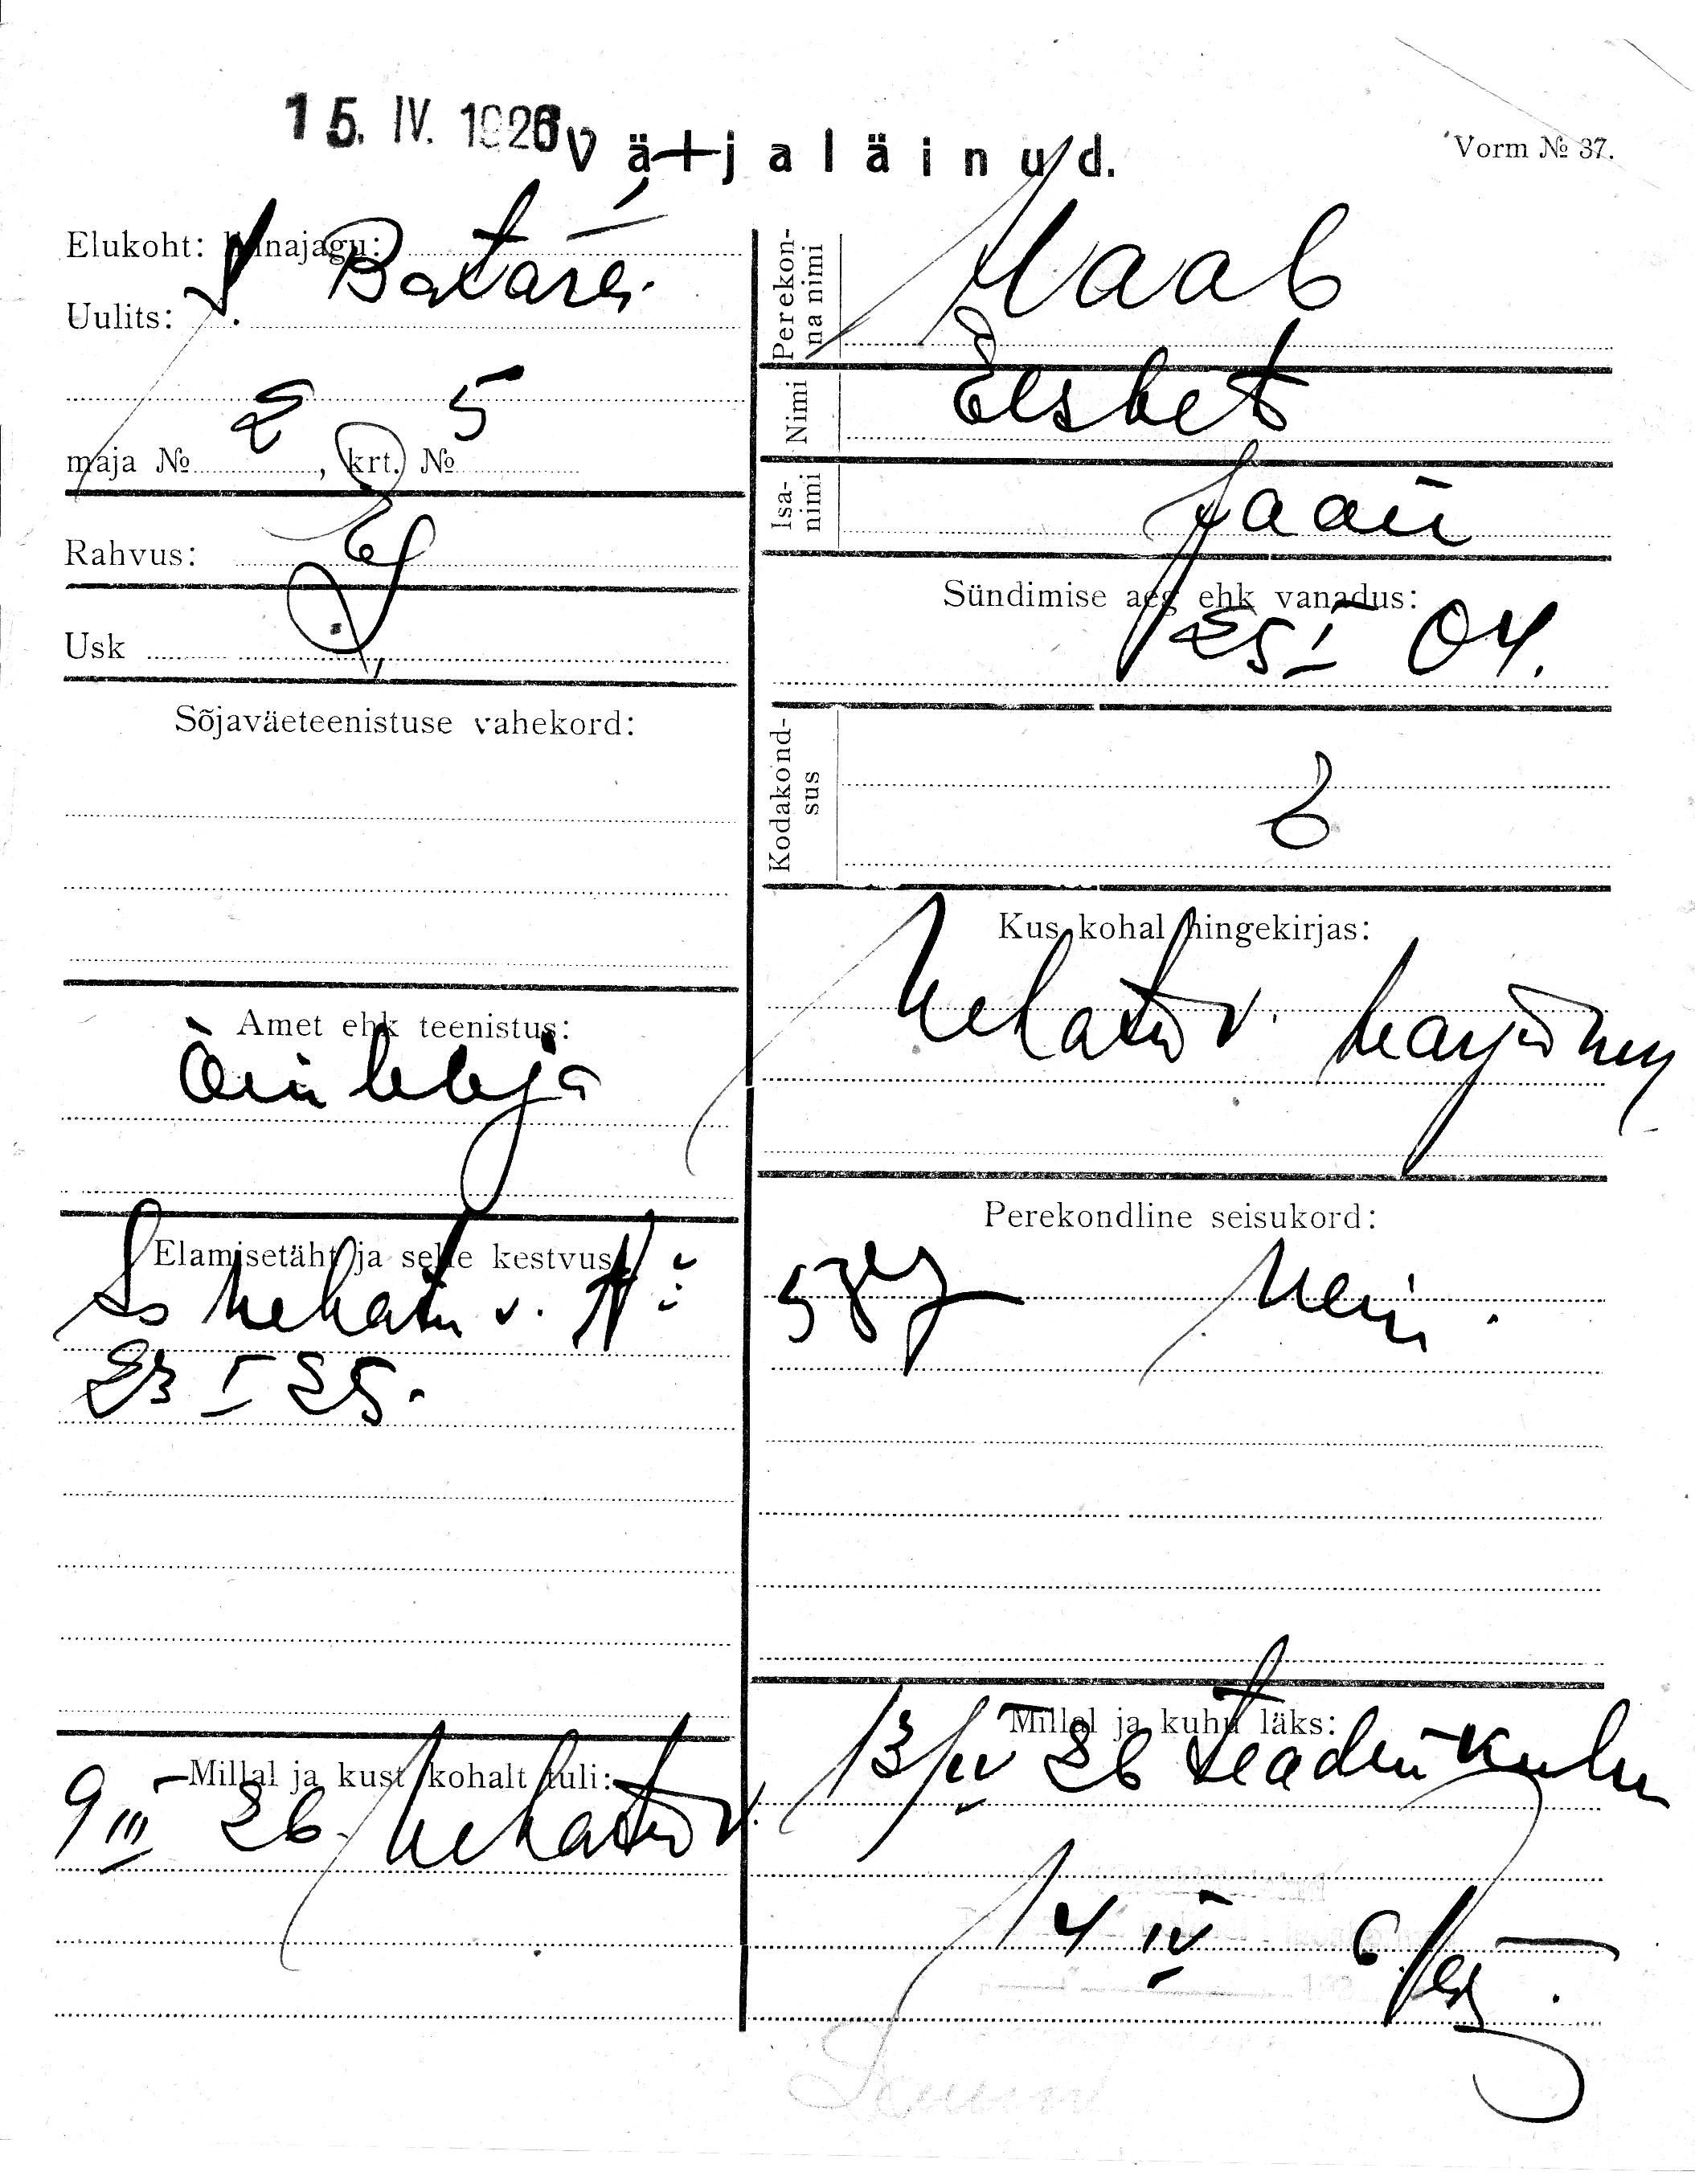 15. IV. 1926
Väljaläinud.
Vorm № 37.
Elukoht: linnajagu:
Batarei
Uulits:
maja № 2, krt. № 5
Rahvus: E
Usk
Sõjaväeteenistuse vahekord:
Amet ehk teenistus:
Elamisetäht ja selle kestvus:
Nehatu v.
23 I 25.
Millal ja kust kohalt tuli:
9 III 26. Nehatu v.
Perekonna nimi
Maab
Nimi
Elsbet
Isanimi
Jaan
Sündimise aeg ehk vanadus:
25 I 04.
Kodakondsus
Kus kohal hingekirjas:
Nehatu v. Harju
Perekondline seisukord:
Neiu.
Millal ja kuhu läks:
13/IV 26 teadm kuhu
14 IV 6